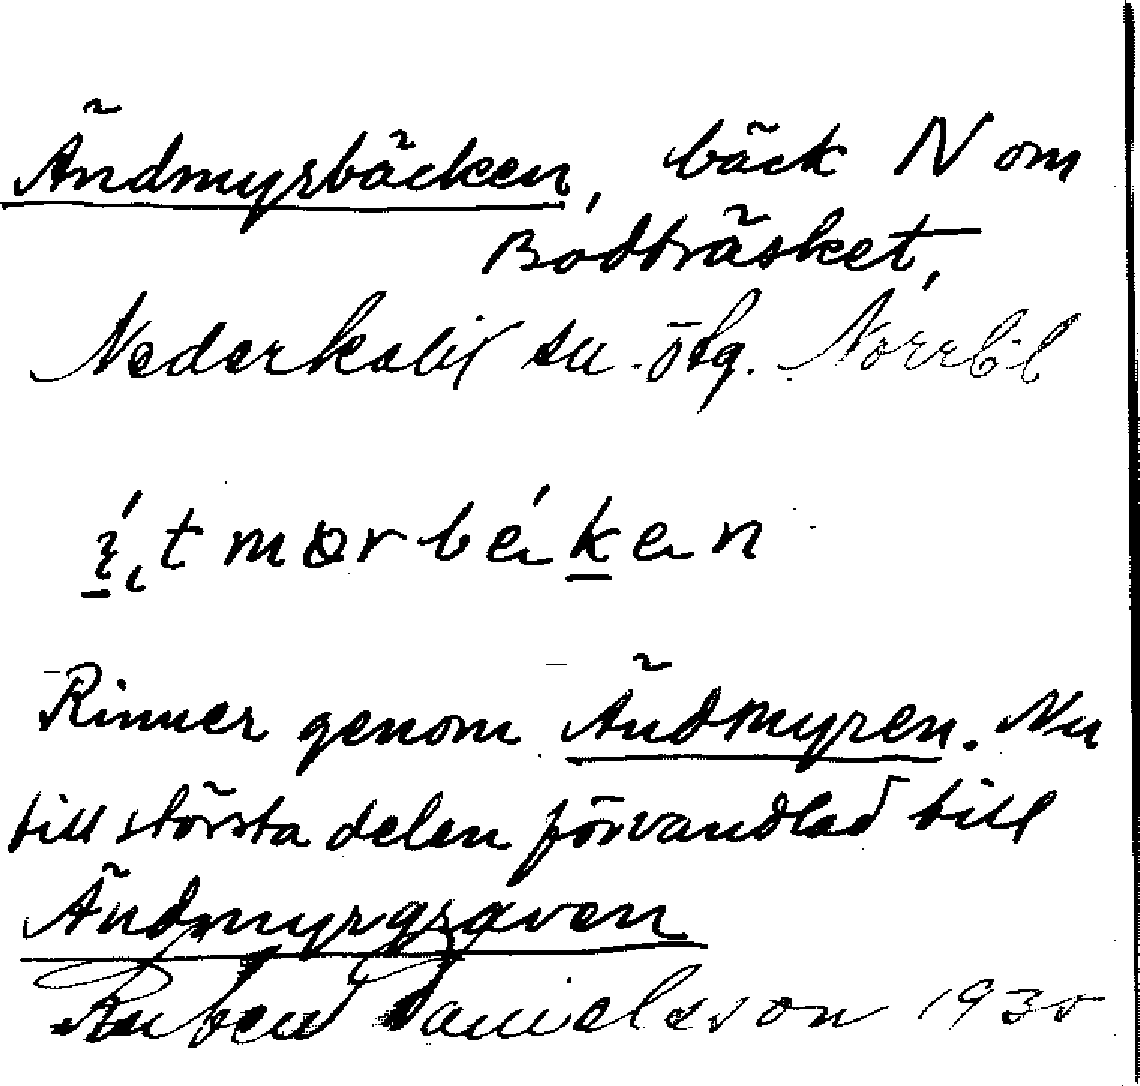 Ändmyrbäcken, bäck N om
Bodträsket,
Nederkalix sn. öbg. Norrb.l
Rinner genom Ändmyren. Nu
till största delen förvandlad till
Ändmyrgraven
Ruben Danielsson 1930